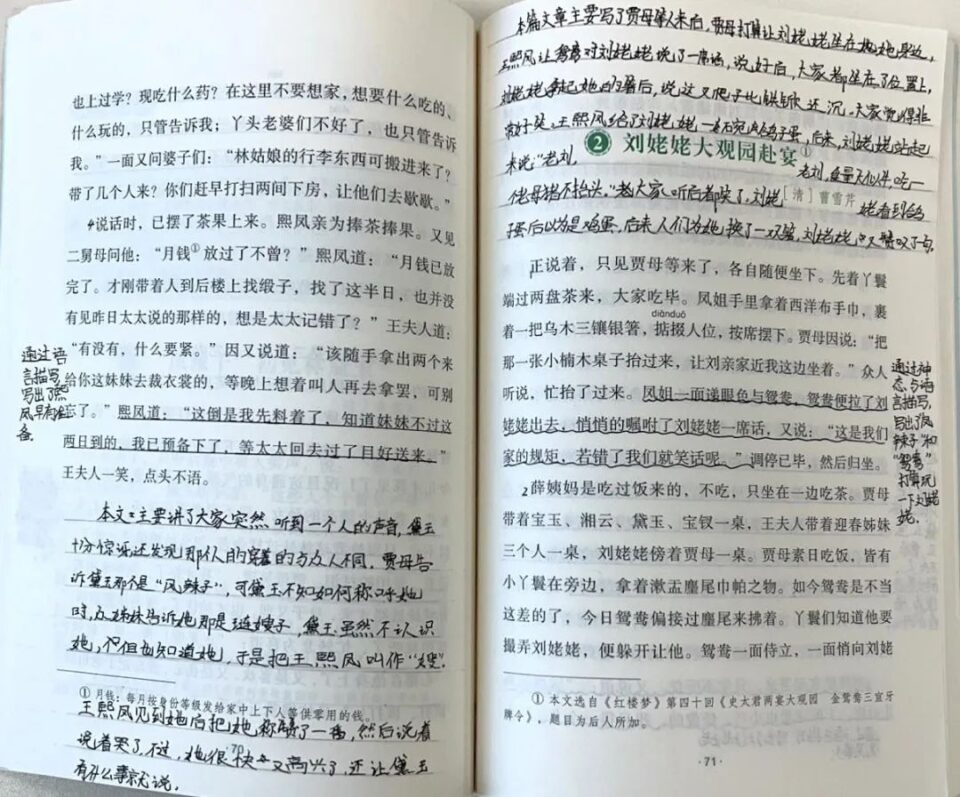 也上过学？现吃什么药？在这里不要想家，想要什么吃的、
什么玩的，只管告诉我；丫头老婆们不好了，也只管告诉
我。”一面又问婆子们：“林姑娘的行李东西可搬进来了？
带了几个人来？你们赶早打扫两间下房，让他们去歇歇。”
4说话时，已摆了茶果上来。熙凤亲为捧茶捧果。又见
二舅母问他：“月钱①放过了不曾？”熙凤道：“月钱已放
完了。才刚带着人到后楼上找缎子，找了这半日，也并没
有见昨日太太说的那样的，想是太太记错了？”王夫人道：
“有没有，什么要紧。”因又说道：“该随手拿出两个来
给你这妹妹去裁衣裳的，等晚上想着叫人再去拿罢，可别
忘了。”熙凤道：“这倒是我先料着了，知道妹妹不过这
两日到的，我已预备下了，等太太回去过了目好送来。”
王夫人一笑，点头不语。
通过语
言描写，
写出了熙
凤早有准
备。
本文主要讲了大家突然听到一个人的声音，黛玉
十分惊讶还发现那人的穿着的与众人不同，贾母告
诉黛玉那个是“凤辣子”，可黛玉不知如何称呼她
时，众姊妹告诉她那是琏嫂子，黛玉虽然不认识
她，但也知道她，于是把王熙凤叫作“嫂”。
① 月钱：每月按身份等级发给家中上下人等供零用的钱。
王熙凤见到她后把她称赞了一番，然后说着
说着哭了，不过，她很快又高兴了，还让黛玉
有什么事就说。
本篇文章主要写了贾母等人来后，贾母打算让刘姥姥坐在她身边，
王熙凤让鸳鸯对刘姥姥说了一席话，说好后，大家都坐在了位置上，
刘姥姥拿起她的箸后，说这叉爬子比铁锨还沉，大家觉得非
常好笑，王熙凤给了刘姥姥一碗鸽子蛋，后来，刘姥姥站起
来说：“老刘，
2 刘姥姥大观园赴宴①
老刘，食量大似牛，吃一
[清] 曹雪芹
佬母猪不抬头。”大家听后都笑了，刘姥
姥看到鸽
子蛋后以为是鸡蛋，后来人们为她换了一双箸，刘姥姥又赞叹了一句
正说着，只见贾母等来了，各自随便坐下。先着丫鬟
端过两盘茶来，大家吃毕。凤姐手里拿着西洋布手巾，裹
diānduō
着一把乌木三镶银箸，掂掇人位，按席摆下。贾母因说：“把
那一张小楠木桌子抬过来，让刘亲家近我这边坐着。”众人
听说，忙抬了过来。凤姐一面递眼色与鸳鸯，鸳鸯便拉了刘
姥姥出去，悄悄的嘱咐了刘姥姥一席话，又说：“这是我们
家的规矩，若错了我们就笑话呢。”调停已毕，然后归坐。
2 薛姨妈是吃过饭来的，不吃，只坐在一边吃茶。贾母
带着宝玉、湘云、黛玉、宝钗一桌，王夫人带着迎春姊妹
三个人一桌，刘姥姥傍着贾母一桌。贾母素日吃饭，皆有
小丫鬟在旁边，拿着漱盂麈尾巾帕之物。如今鸳鸯是不当
这差的了，今日鸳鸯偏接过麈尾来拂着。丫鬟们知道他要
撮弄刘姥姥，便躲开让他。鸳鸯一面侍立，一面悄向刘姥
通过神
态、与语
言描写，
写出了“凤
辣子”和
“鸳鸯”
打算玩
一下刘姥
姥。
① 本文选自《红楼梦》第四十回《史太君两宴大观园　金鸳鸯三宣牙
牌令》，题目为后人所加。
·71·